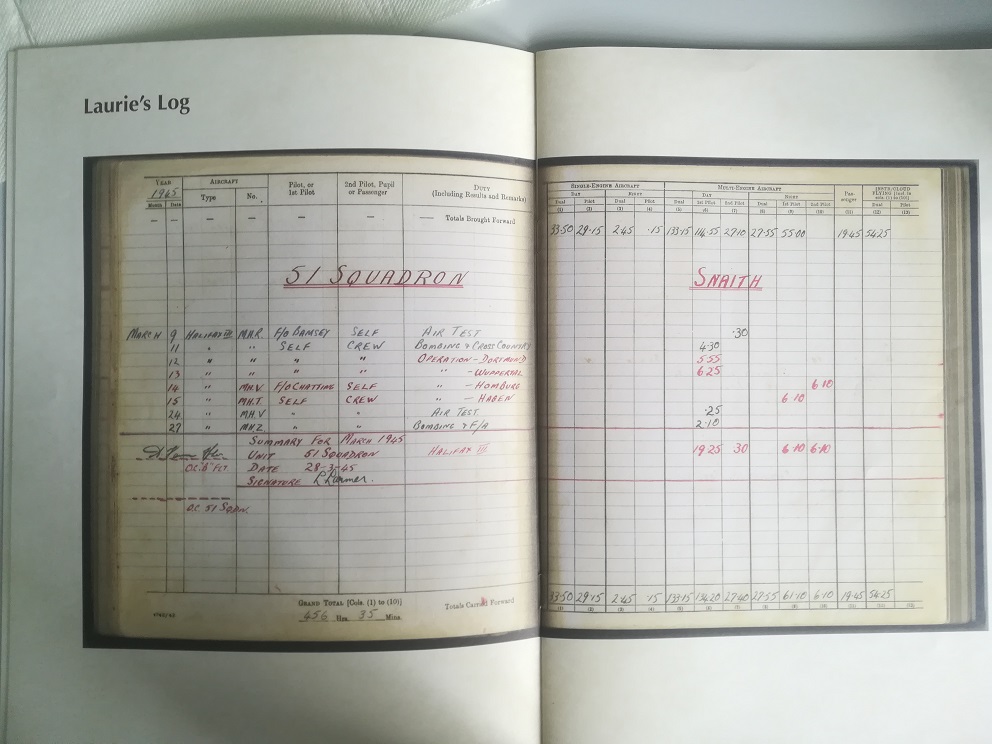 Laurie's Log
YEAR AIRCRAFT Pilot, or 1st Pilot 2nd Pilot, Pupil or Passenger DUTY (Including Results and Remarks)
1945 Type No.
Month Date
— — — — — — —— Totals Brought Forward
51 SQUADRON
MARCH 9 HALIFAX III M.H.R. F/O RAMSEY SELF AIR TEST
11 " " SELF CREW BOMBING & CROSS COUNTRY
12 " " " " OPERATION - DORTMUND
13 " " " " " - WUPPERTAL
14 " MH.V F/O CHATTING SELF " - HOMBURG
15 " MH.T. SELF CREW " - HAGEN
24 " MH.V " " AIR TEST
27 " MH.Z. " " BOMBING & F/A
SUMMARY FOR MARCH 1945
UNIT 51 SQUADRON HALIFAX III
DATE 28-3-45
SIGNATURE
O.C. 51 SQDN.
GRAND TOTAL [Cols. (1) to (10)]
456 Hrs. 35 Mins.
Totals Carried Forward
SINGLE-ENGINE AIRCRAFT MULTI-ENGINE AIRCRAFT PASSENGER INSTR/CLOUD FLYING
DAY NIGHT DAY NIGHT
Dual Pilot Dual Pilot Dual 1st Pilot 2nd Pilot Dual 1st Pilot 2nd Pilot Dual Pilot
(1) (2) (3) (4) (5) (6) (7) (8) (9) (10) (11) (12) (13)
33·50 29·15 2·45 ·15 133·15 114·55 27·10 27·55 55·00 19·45 54·25
SNAITH
·30
4·30
5·55
6·25
6·10
6·10
·25
2·10
19·25 30 6·10 6·10
33·50 29·15 2·45 ·15 133·15 134·20 27·40 27·55 61·10 6·10 19·45 54·25
(1) (2) (3) (4) (5) (6) (7) (8) (9) (10) (11) (12) (13)